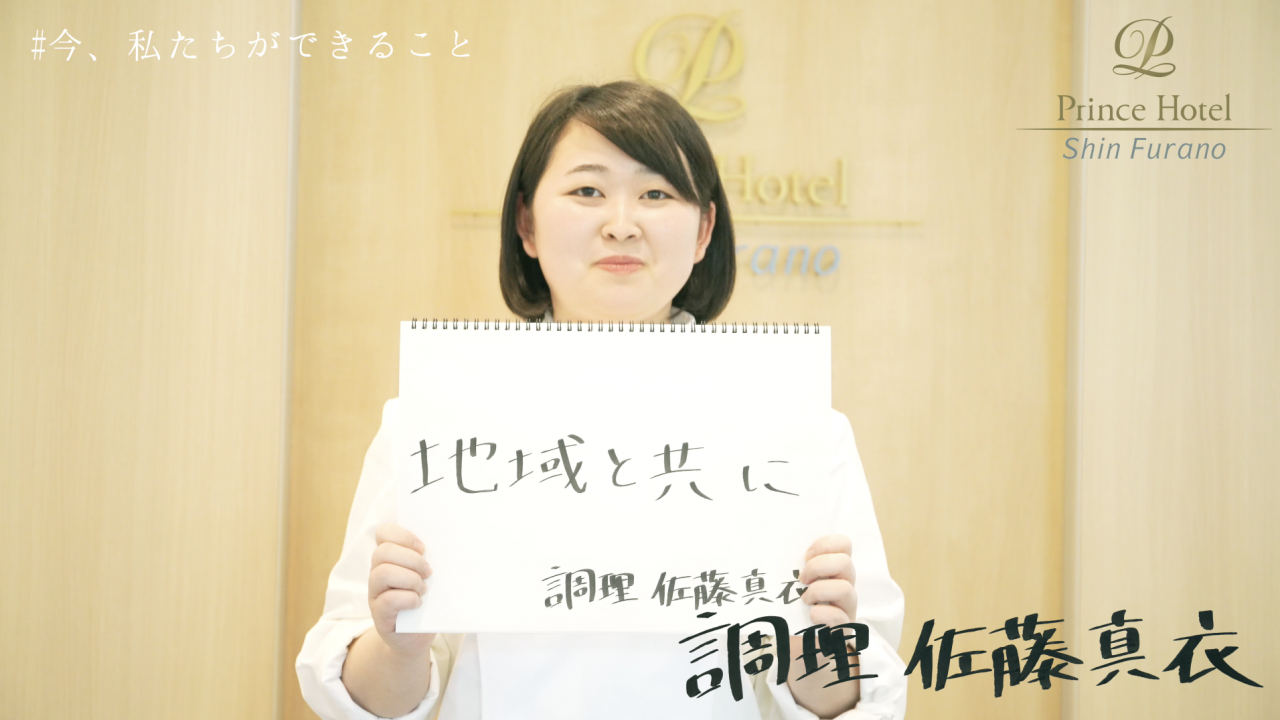 #今、私たちができること
Prince Hotel
Shin Furano
Hotel
urano
地域と共に
調理 佐藤真衣
調理 佐藤真衣